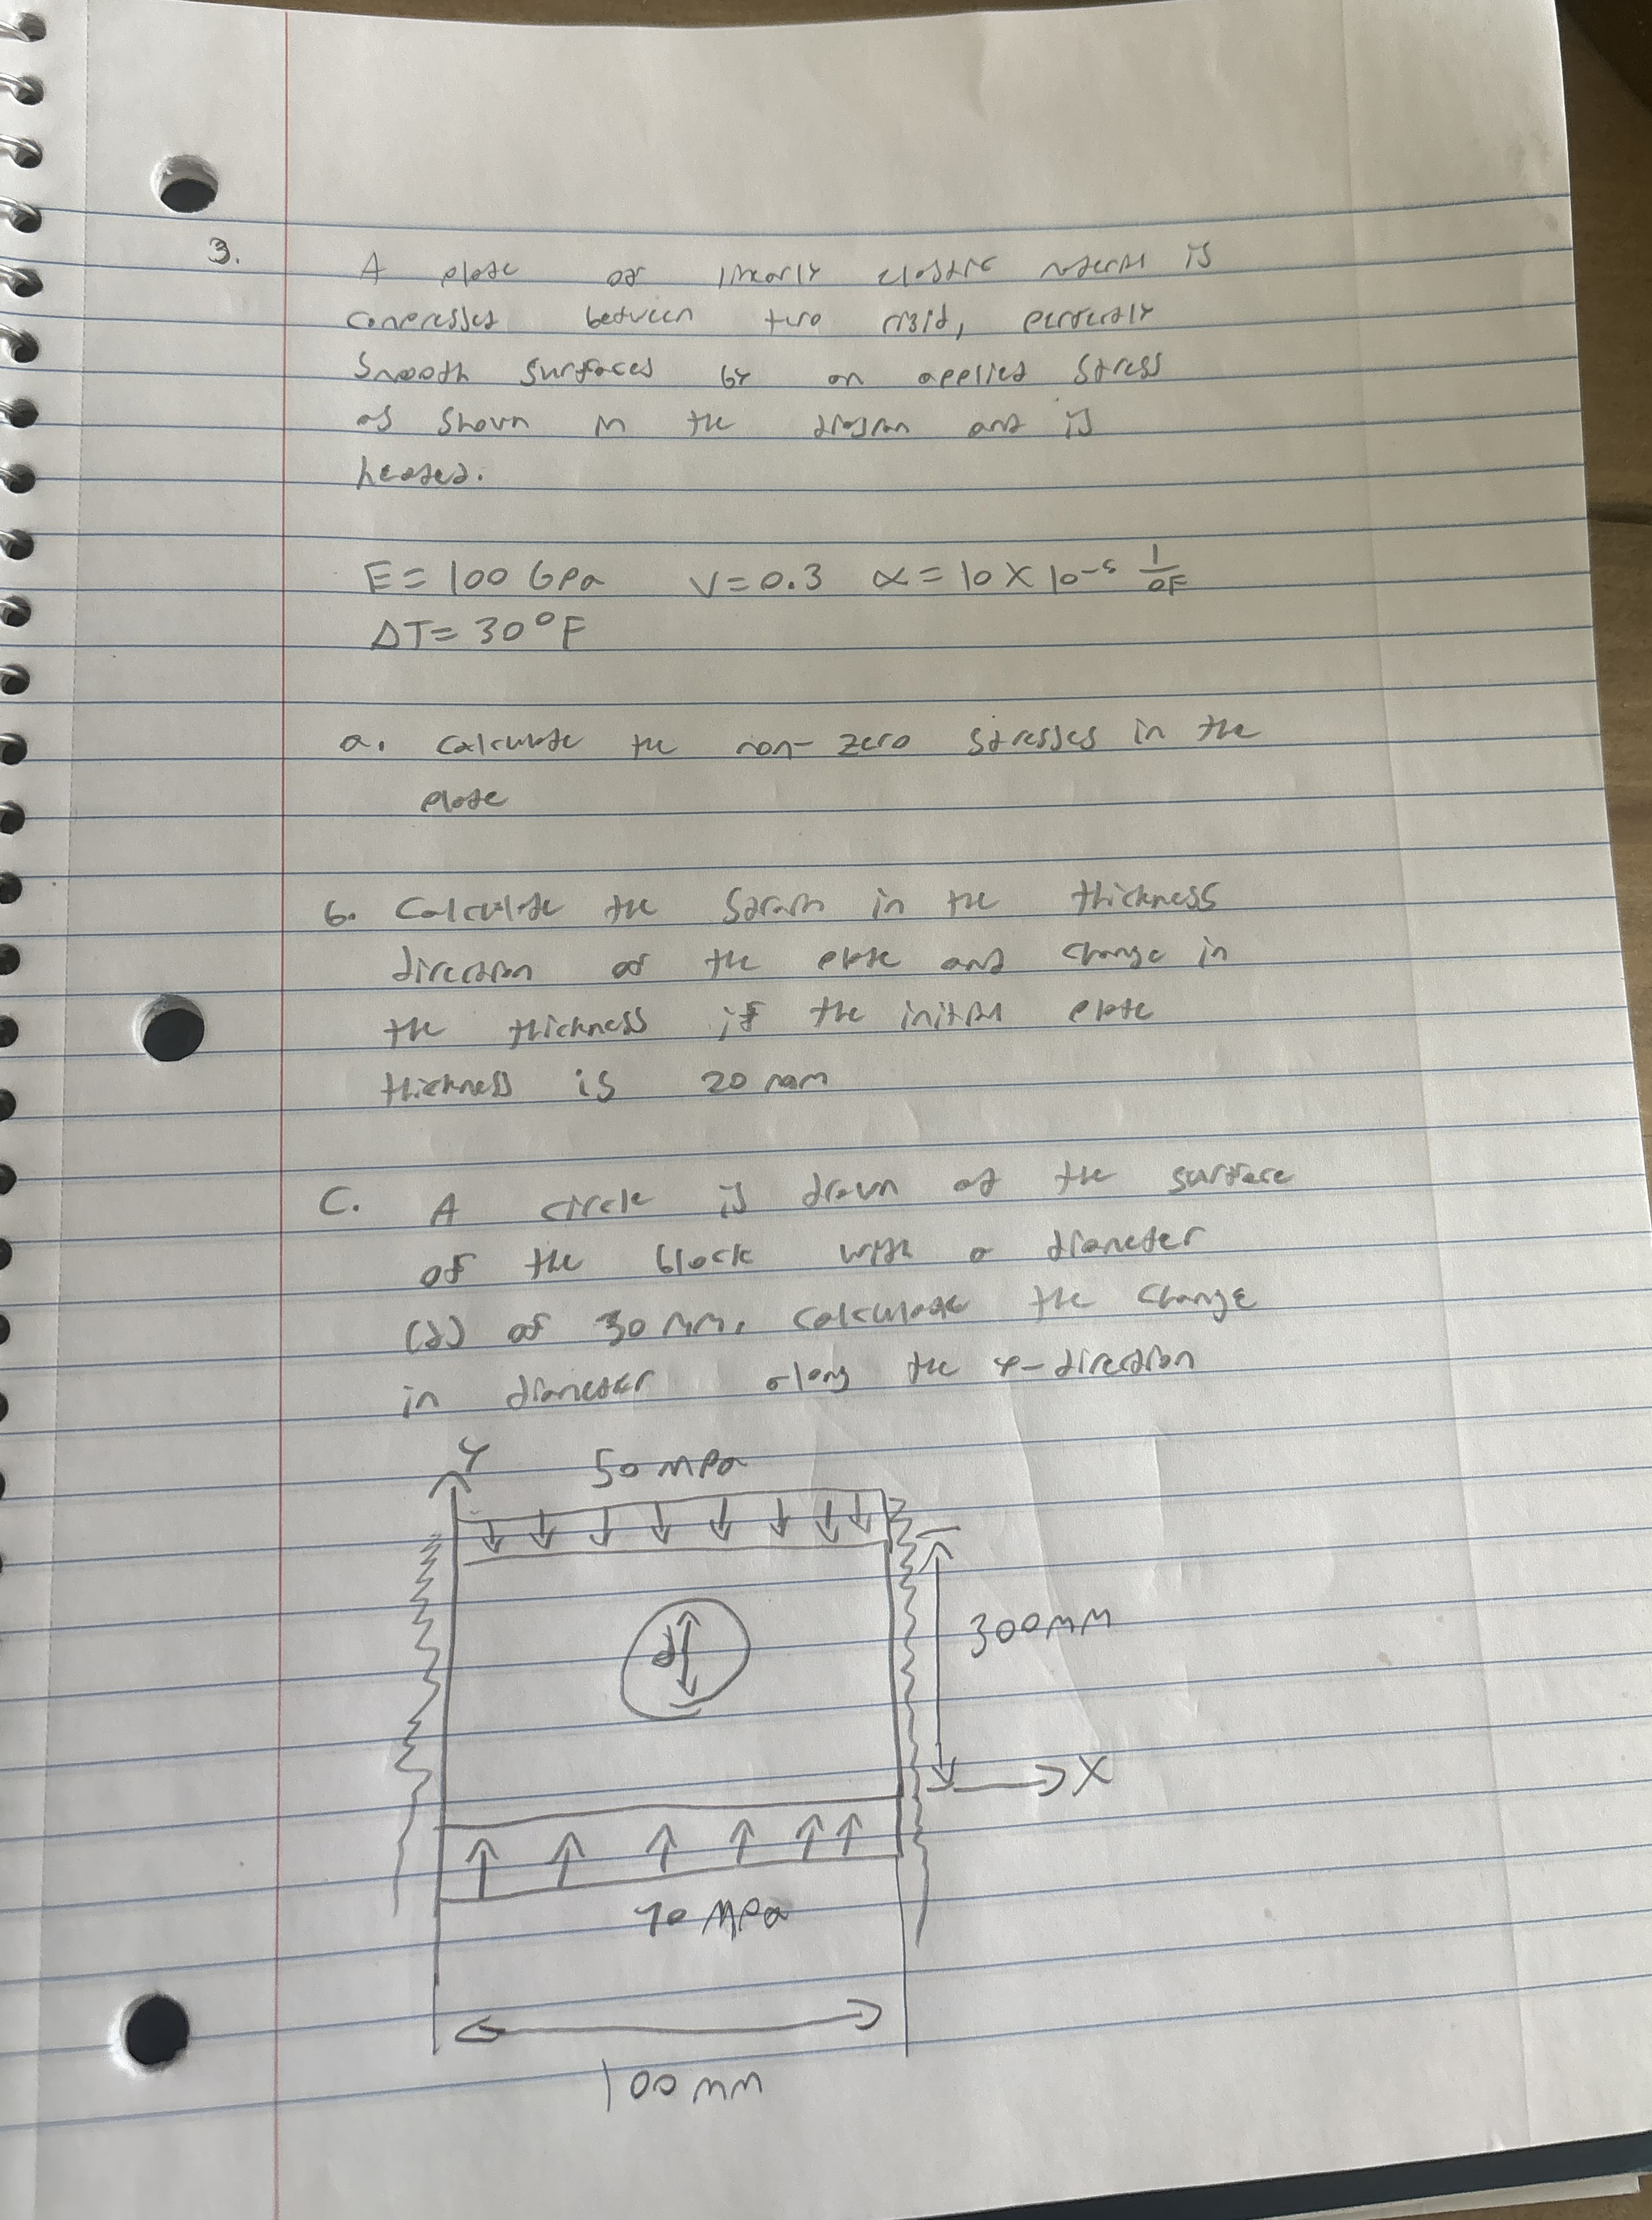 3.
A plate of linearly elastic material is
compressed between two rigid, perfectly
smooth surfaces by an applied stress
as shown in the diagram and is
heated.
E = 100 GPa V = 0.3 α = 10 X 10⁻⁵ 1/°F
ΔT = 30°F
a. calculate the non-zero stresses in the
plate
b. Calculate the strain in the thickness
direction of the plate and change in
the thickness if the initial plate
thickness is 20 mm
C. A circle is drawn at the surface
of the block with a diameter
(d) of 30 mm. calculate the change
in diameter along the y-direction
Y
50 MPa
d
300mm
X
MPa
100mm